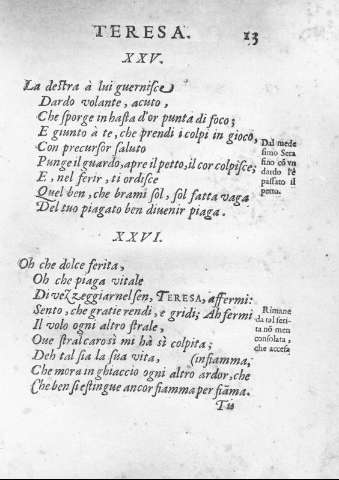 TERESA. 13
XXV.
La destra à lui guernisce
Dardo volante, acuto,
Che sporge in hasta d'or punta di foco;
E giunto à te, che prendi i colpi in gioco,
Con precursor saluto
Punge il guardo, apre il petto, il cor colpisce;
E, nel ferir, ti ordisce
Quel ben, che brami sol, sol fatta vaga
Del tuo piagato ben divenir piaga.
Dal mede
simo Sera
fino cõ vn
dardo l'è
passato il
petto.
XXVI.
Oh che dolce ferita,
Oh che piaga vitale
Di vezzeggiar nel sen, TERESA, affermi:
Sento, che gratie rendi, e gridi; Ah fermi
Il volo ogni altro strale,
Oue stral carosì mi hà sì colpita;
Deh tal sia la sua vita,
(infiamma,
Che mora in ghiaccio ogni altro ardor, che
Che ben si estingue ancor fiamma per fiãma.
Rimane
da tal feri-
ta nõ men
consolata,
che accesa
Tu